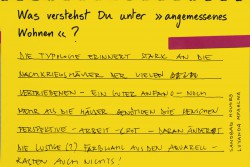 Was verstehst Du unter »angemessenes
Wohnen«?
DIE TYPOLOGIE ERINNERT STARK AN DIE
NACHKRIEGSHÄUSER DER VIELEN
VERTRIEBENEN - EIN GUTER ANFANG - NOCH
MEHR ALS DIE HÄUSER BENÖTIGEN DIE MENSCHEN
PERSPEKTIVE - ARBEIT - GOTT - DARAN ÄNDERT
DIE LUSTIGE (?) FÄRBUNG AUS DEN AQUARELL-
KÄSTEN AUCH NICHTS!